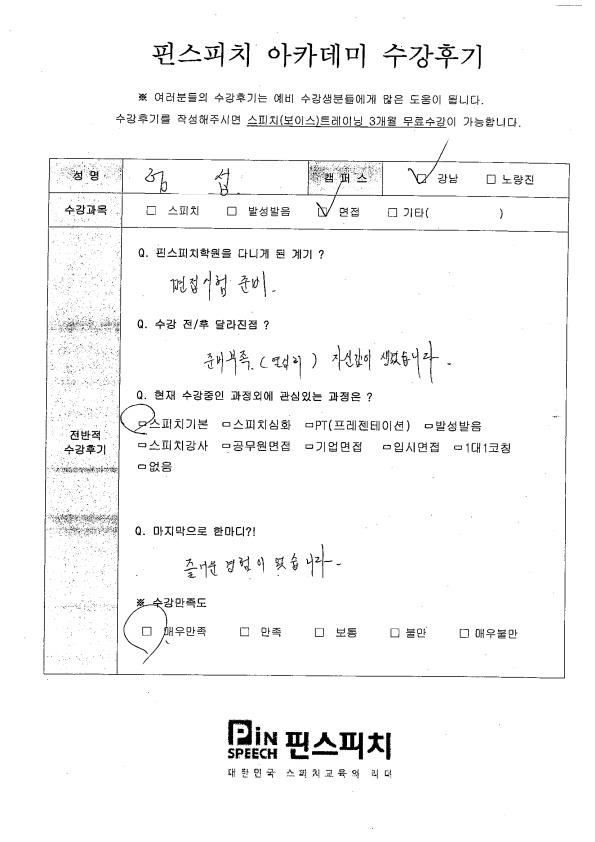 핀스피치 아카데미 수강후기
※ 여러분들의 수강후기는 예비 수강생분들에게 많은 도움이 됩니다.
수강후기를 작성해주시면 스피치(보이스)트레이닝 3개월 무료수강이 가능합니다.
성 명 섭 캠 퍼 스 □ 강남 □ 노량진
수강과목 □ 스피치 □ 발성발음 □ 면접 □ 기타( )
전반적
수강후기
Q. 핀스피치학원을 다니게 된 계기 ?
면접시험 준비.
Q. 수강 전/후 달라진점 ?
준비부족 (열심히) 자신감이 생겼습니다.
Q. 현재 수강중인 과정외에 관심있는 과정은 ?
□스피치기본 □스피치심화 □PT(프레젠테이션) □발성발음
□스피치강사 □공무원면접 □기업면접 □입시면접 □1대1코칭
□없음
Q. 마지막으로 한마디?!
즐거운 경험이 됐습니다.
※ 수강만족도
□ 매우만족 □ 만족 □ 보통 □ 불만 □ 매우불만
PiN SPEECH 핀스피치
대한민국 스피치교육의 리더